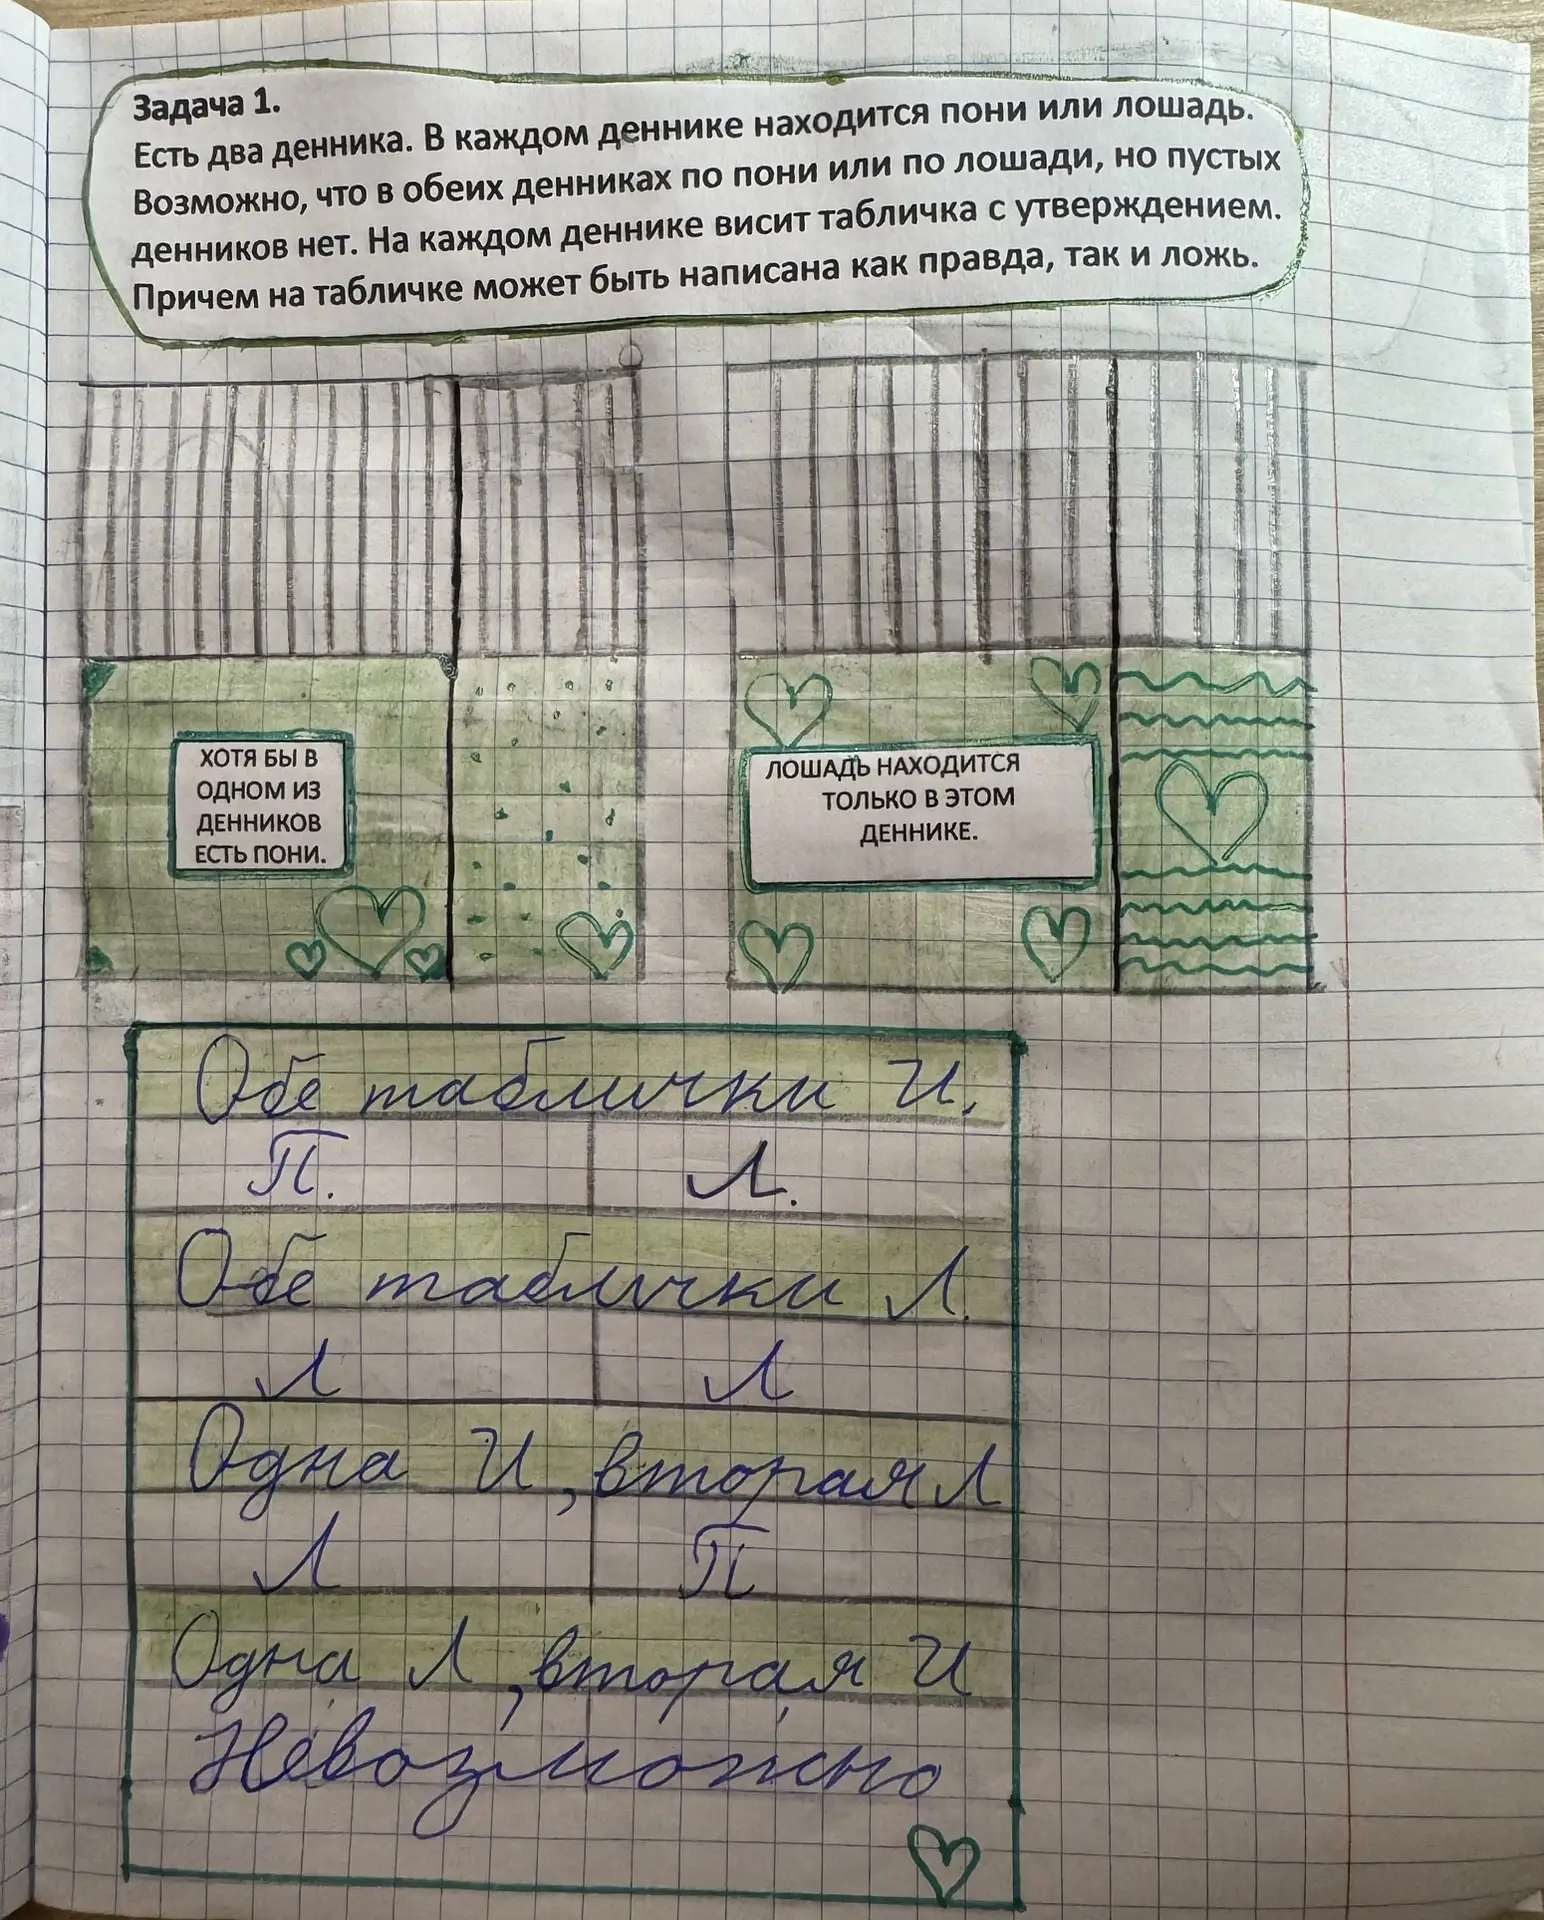 Задача 1.
Есть два денника. В каждом деннике находится пони или лошадь.
Возможно, что в обеих денниках по пони или по лошади, но пустых
денников нет. На каждом деннике висит табличка с утверждением.
Причем на табличке может быть написана как правда, так и ложь.
ХОТЯ БЫ В
ОДНОМ ИЗ
ДЕННИКОВ
ЕСТЬ ПОНИ.
ЛОШАДЬ НАХОДИТСЯ
ТОЛЬКО В ЭТОМ
ДЕННИКЕ.
Обе таблички И.
П. Л.
Обе таблички Л.
Л Л
Одна И, вторая Л
Л П
Одна Л, вторая И
Невозможно